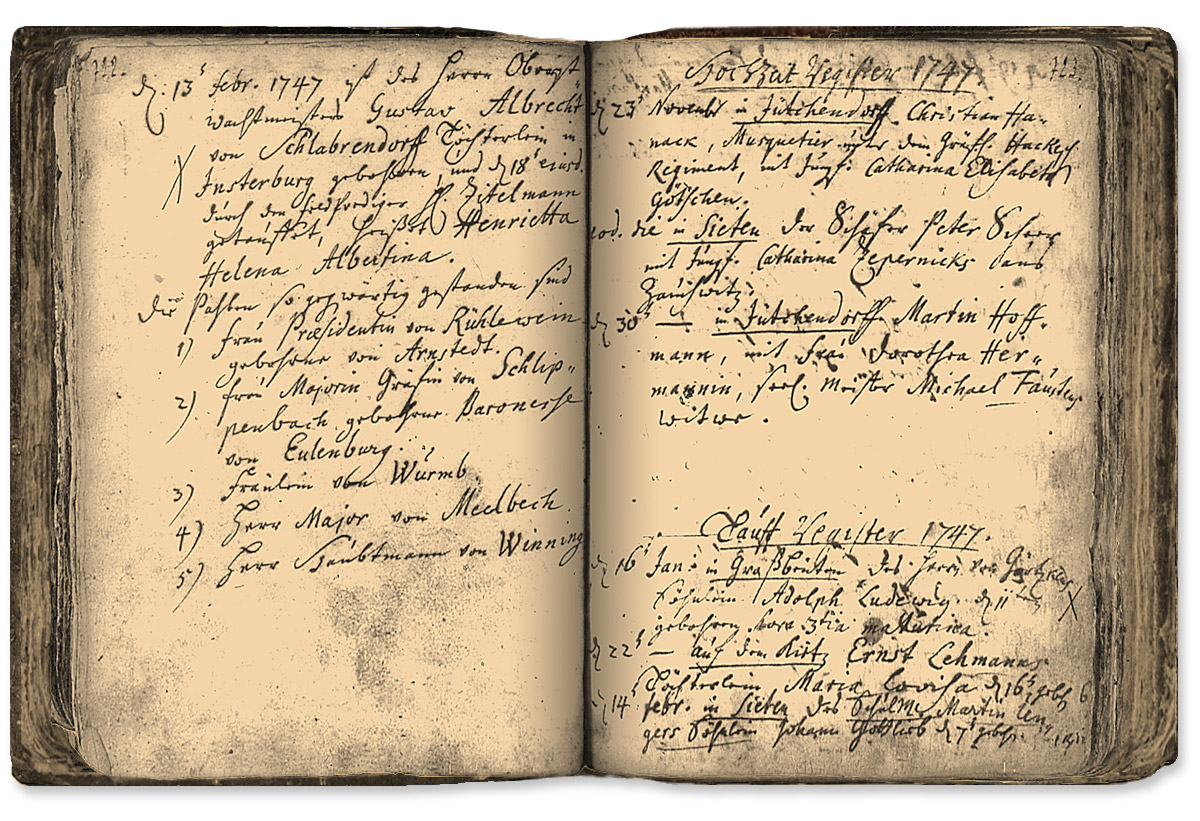 112.
d. 13t febr. 1747 ist des Herrn Oberst
wachtmeisters Gustav Albrecht
von Schlabrendorff Töchterlein in
Insterburg gebohren, und d 18t eiusd.
durch den Feldprediger H. Zitelmann
getauffet, heißet Henrietta
Helena Albertina.
Die Pathen so gegwärtig gestanden sind
1) Frau Præsidentin von Rühlewein
gebohrne von Arnstedt.
2) Frau Majorin Gräfin von Schlip=
penbach gebohrne Baronesse
von Eulenburg.
3) Fräulein von Würmb
4) Herr Major von Meelbech
5) Herr Haubtmann von Winning
Hochzeit Register 1747. 113.
d 23t Novembr in Jütchendorff Christian Ha=
nack, Musquetier unter dem Gräffl. Hackesch.
Regiment, mit Jungf. Catharina Elisabeth
Götschen.
eod. die in Sieten der Schäfer Peter
mit Jungf. Catharina Zepernicks aus
d 30t — in Jütchendorff Martin Hoff=
mann, mit Frau Dorothea Her=
mannin, seel. Meister Michael Fausten
witwe.
Tauff Register 1747.
d 16t Jan: in Großbeuten des Herrn von
Söhnlein Adolph Ludewig. d 11
gebohren hora 3tia matutina.
d 22t — auf dem Kietz Ernst Lehmanns
Töchterlein Maria Lovisa d 16t gebh
14 febr. in Sieten des Martin Un=
gers Söhnlein Johann Gottlieb d 7t gebh.